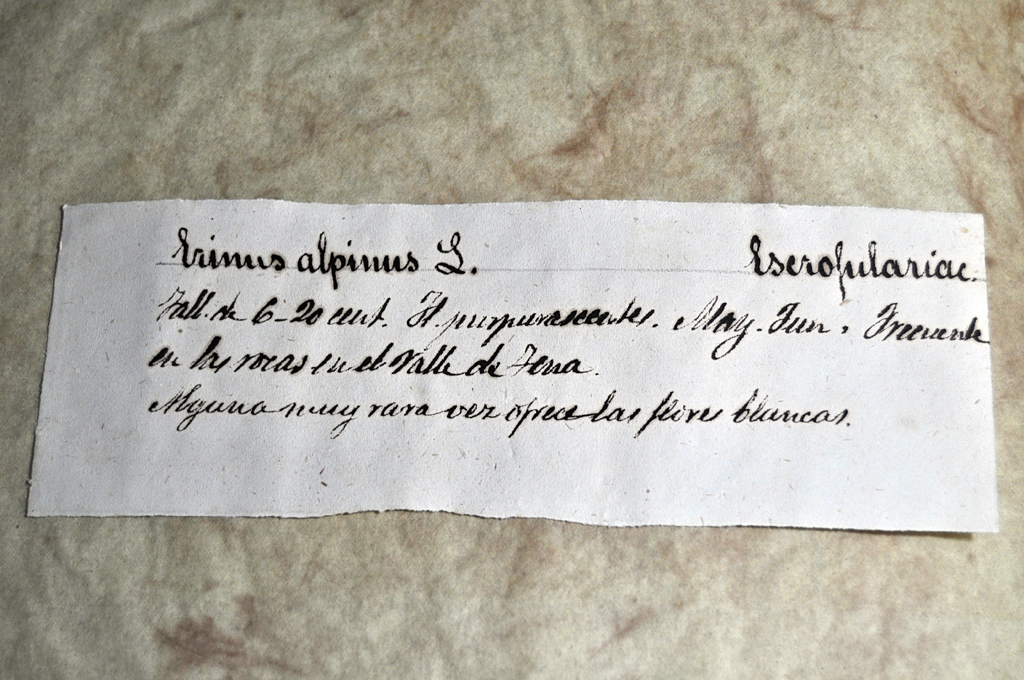 Erinus alpinus L. Escrofulariac.
Tall. de 6-20 cent. Fl. purpurascentes. May. Jun. Frecuente
en las rocas en el Valle de Tena.
Alguna muy rara vez ofrece las flores blancas.